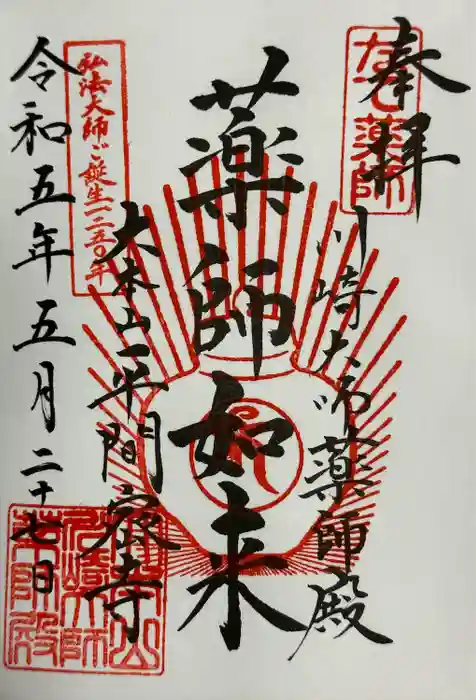 奉拝
なで薬師
川崎大師薬師殿
薬師如来
大本山平間寺
弘法大師ご誕生一二五〇年
令和五年五月二十七日